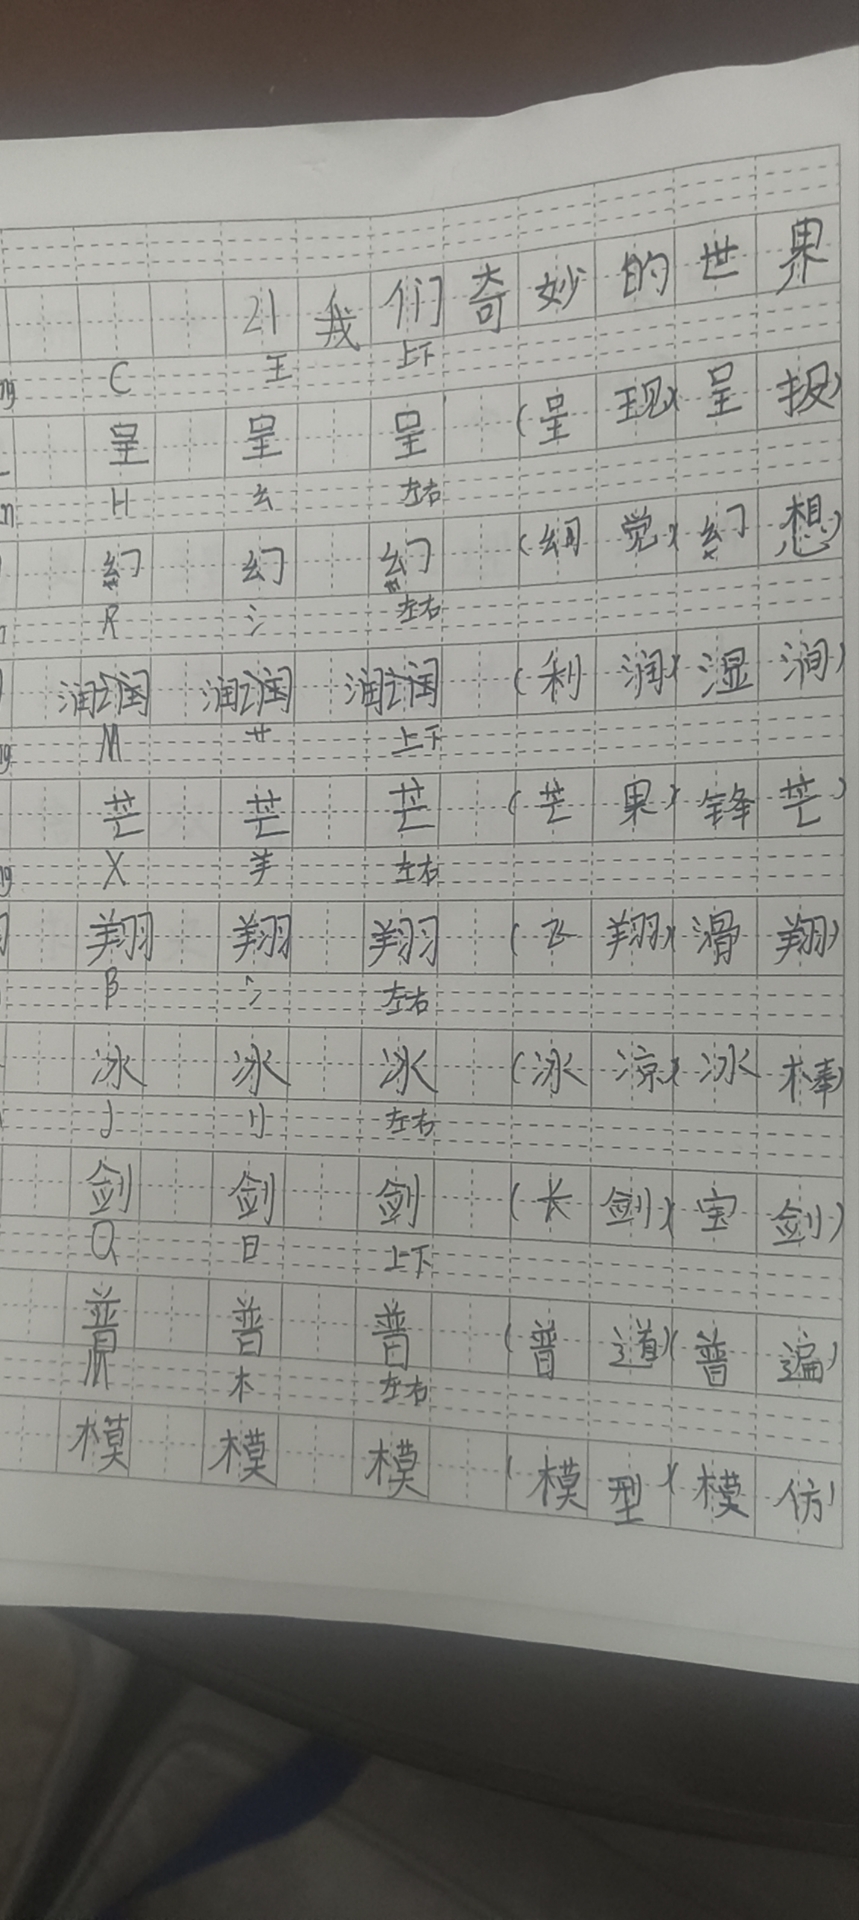 21我们奇妙的世界
ng C 王 上下
呈 呈 呈 (呈现)(呈报)
H 幺 左右
幻 幻 幻 (幻觉)(幻想)
R 氵 左右
润 润 润 (利润)(湿润)
ng M 艹 上下
芒 芒 芒 (芒果)(锋芒)
ng X 羊 左右
翔 翔 翔 (飞翔)(滑翔)
B 冫 左右
冰 冰 冰 (冰凉)(冰棒)
J 刂 左右
剑 剑 剑 (长剑)(宝剑)
Q 日 上下
普 普 普 (普道)(普遍)
M 木 左右
模 模 模 (模型)(模仿)